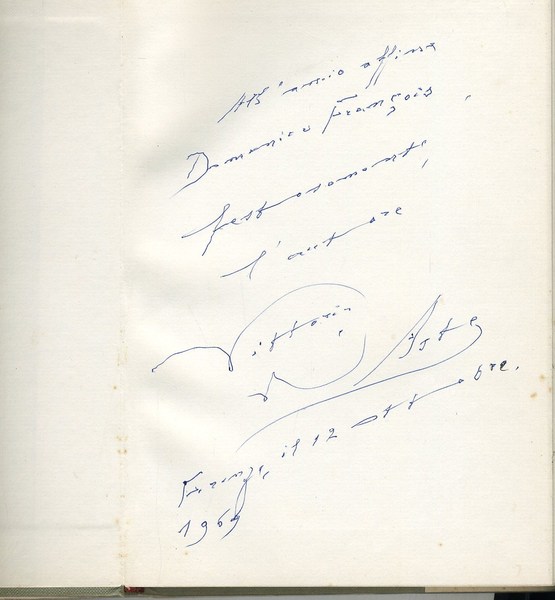 All'amico affine
Domenico François,
festosamente,
l'autore
Vittorio
Firenze, il 12 ottobre.
1969